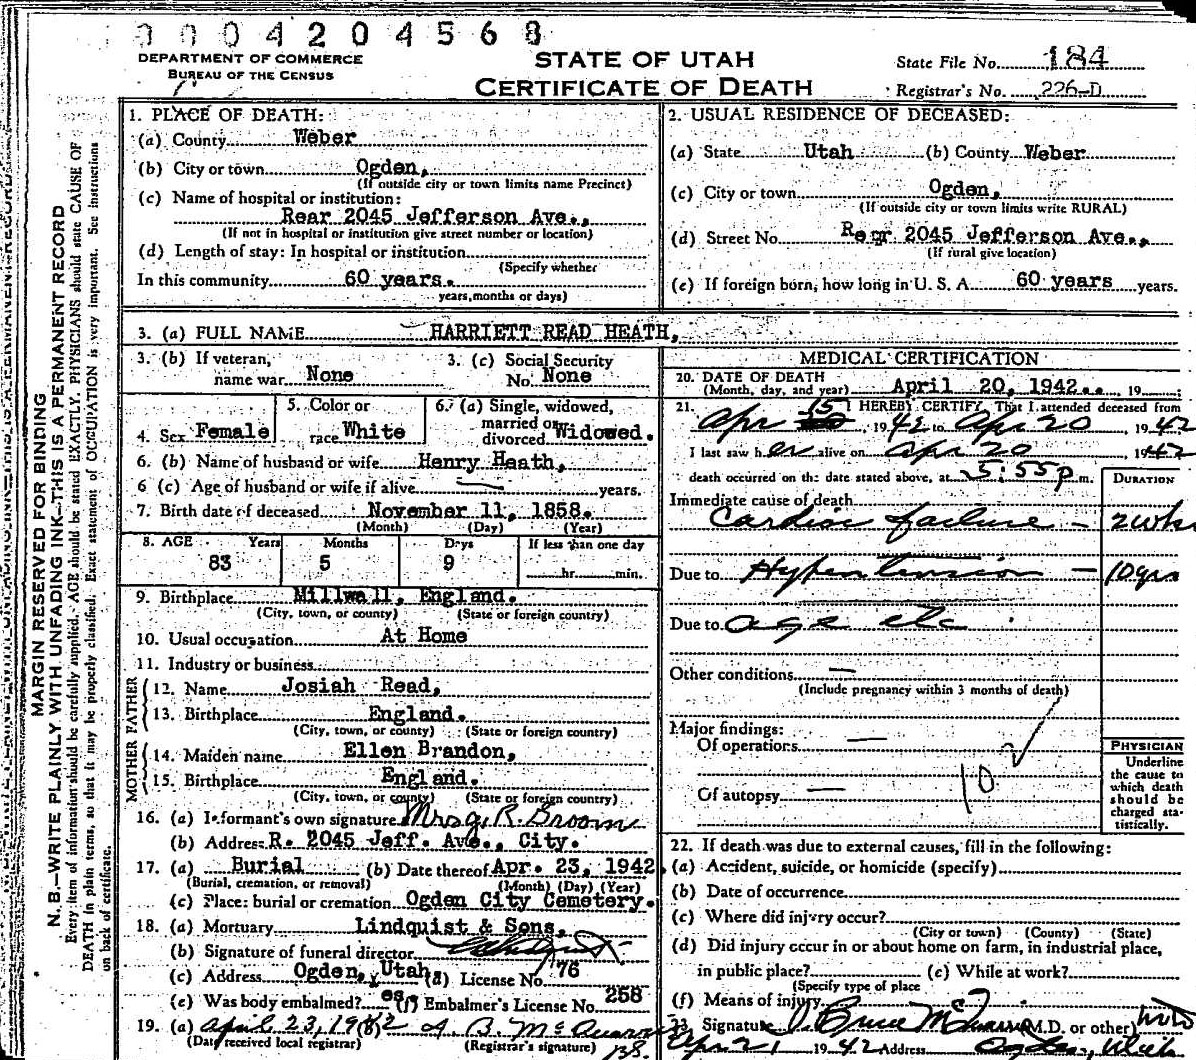 0004204568
DEPARTMENT OF COMMERCE
BUREAU OF THE CENSUS
STATE OF UTAH
CERTIFICATE OF DEATH
State File No. 184
Registrar's No. 226-D
MARGIN RESERVED FOR BINDING
N. B.—WRITE PLAINLY WITH UNFADING INK—THIS IS A PERMANENT RECORD
Every item of information should be carefully supplied. AGE should be stated EXACTLY. PHYSICIANS should state CAUSE OF
DEATH in plain terms, so that it may be properly classified. Exact statement of OCCUPATION is very important. See instructions
on back of certificate.
1. PLACE OF DEATH:
(a) County Weber
(b) City or town Ogden,
(If outside city or town limits name Precinct)
(c) Name of hospital or institution:
Rear 2045 Jefferson Ave.,
(If not in hospital or institution give street number or location)
(d) Length of stay: In hospital or institution
(Specify whether
In this community 60 years.
years, months or days)
2. USUAL RESIDENCE OF DECEASED:
(a) State Utah (b) County Weber
(c) City or town Ogden,
(If outside city or town limits write RURAL)
(d) Street No. Rear 2045 Jefferson Ave.,
(If rural give location)
(e) If foreign born, how long in U. S. A. 60 years years.
3. (a) FULL NAME HARRIETT READ HEATH,
3. (b) If veteran,
name war None
3. (c) Social Security
No. None
4. Sex Female
5. Color or
race White
6. (a) Single, widowed,
married or
divorced Widowed.
6. (b) Name of husband or wife Henry Heath,
6 (c) Age of husband or wife if alive — years.
7. Birth date of deceased November 11, 1858.
(Month) (Day) (Year)
8. AGE Years Months Days If less than one day
83 5 9 hr. min.
9. Birthplace Millwall, England.
(City, town, or county) (State or foreign country)
10. Usual occupation At Home
11. Industry or business
FATHER
12. Name Josiah Read,
13. Birthplace England.
(City, town, or county) (State or foreign country)
MOTHER
14. Maiden name Ellen Brandon,
15. Birthplace England.
(City, town, or county) (State or foreign country)
16. (a) Informant's own signature Mrs G. R. Broom
(b) Address R. 2045 Jeff. Ave., City.
17. (a) Burial (b) Date thereof Apr. 23, 1942.
(Burial, cremation, or removal) (Month) (Day) (Year)
(c) Place: burial or cremation Ogden City Cemetery.
18. (a) Mortuary Lindquist & Sons,
(b) Signature of funeral director
(c) Address Ogden, Utah. (d) License No. 76
(e) Was body embalmed? es (f) Embalmer's License No. 258
19. (a) April 23, 1942 (b)
(Date received local registrar) (Registrar's signature)
MEDICAL CERTIFICATION
20. DATE OF DEATH
(Month, day, and year) April 20, 1942.. 19 ;
21. I HEREBY CERTIFY, That I attended deceased from
Apr 15, 1942 to Apr 20, 1942
I last saw her alive on Apr 20 1942
death occurred on the date stated above, at 5:55 p m.
DURATION
Immediate cause of death
Cardiac failure — 2 wks
Due to Hypertension — 10 yrs
Due to age etc.
Other conditions —
(Include pregnancy within 3 months of death)
Major findings:
Of operations —
Of autopsy —
10 ✓
PHYSICIAN
Underline
the cause to
which death
should be
charged sta-
tistically.
22. If death was due to external causes, fill in the following:
(a) Accident, suicide, or homicide (specify)
(b) Date of occurrence
(c) Where did injury occur?
(City or town) (County) (State)
(d) Did injury occur in or about home on farm, in industrial place,
in public place? (e) While at work?
(Specify type of place
(f) Means of injury
23. Signature (M.D. or other) MD
Apr 21 1942 Address Ogden, Utah